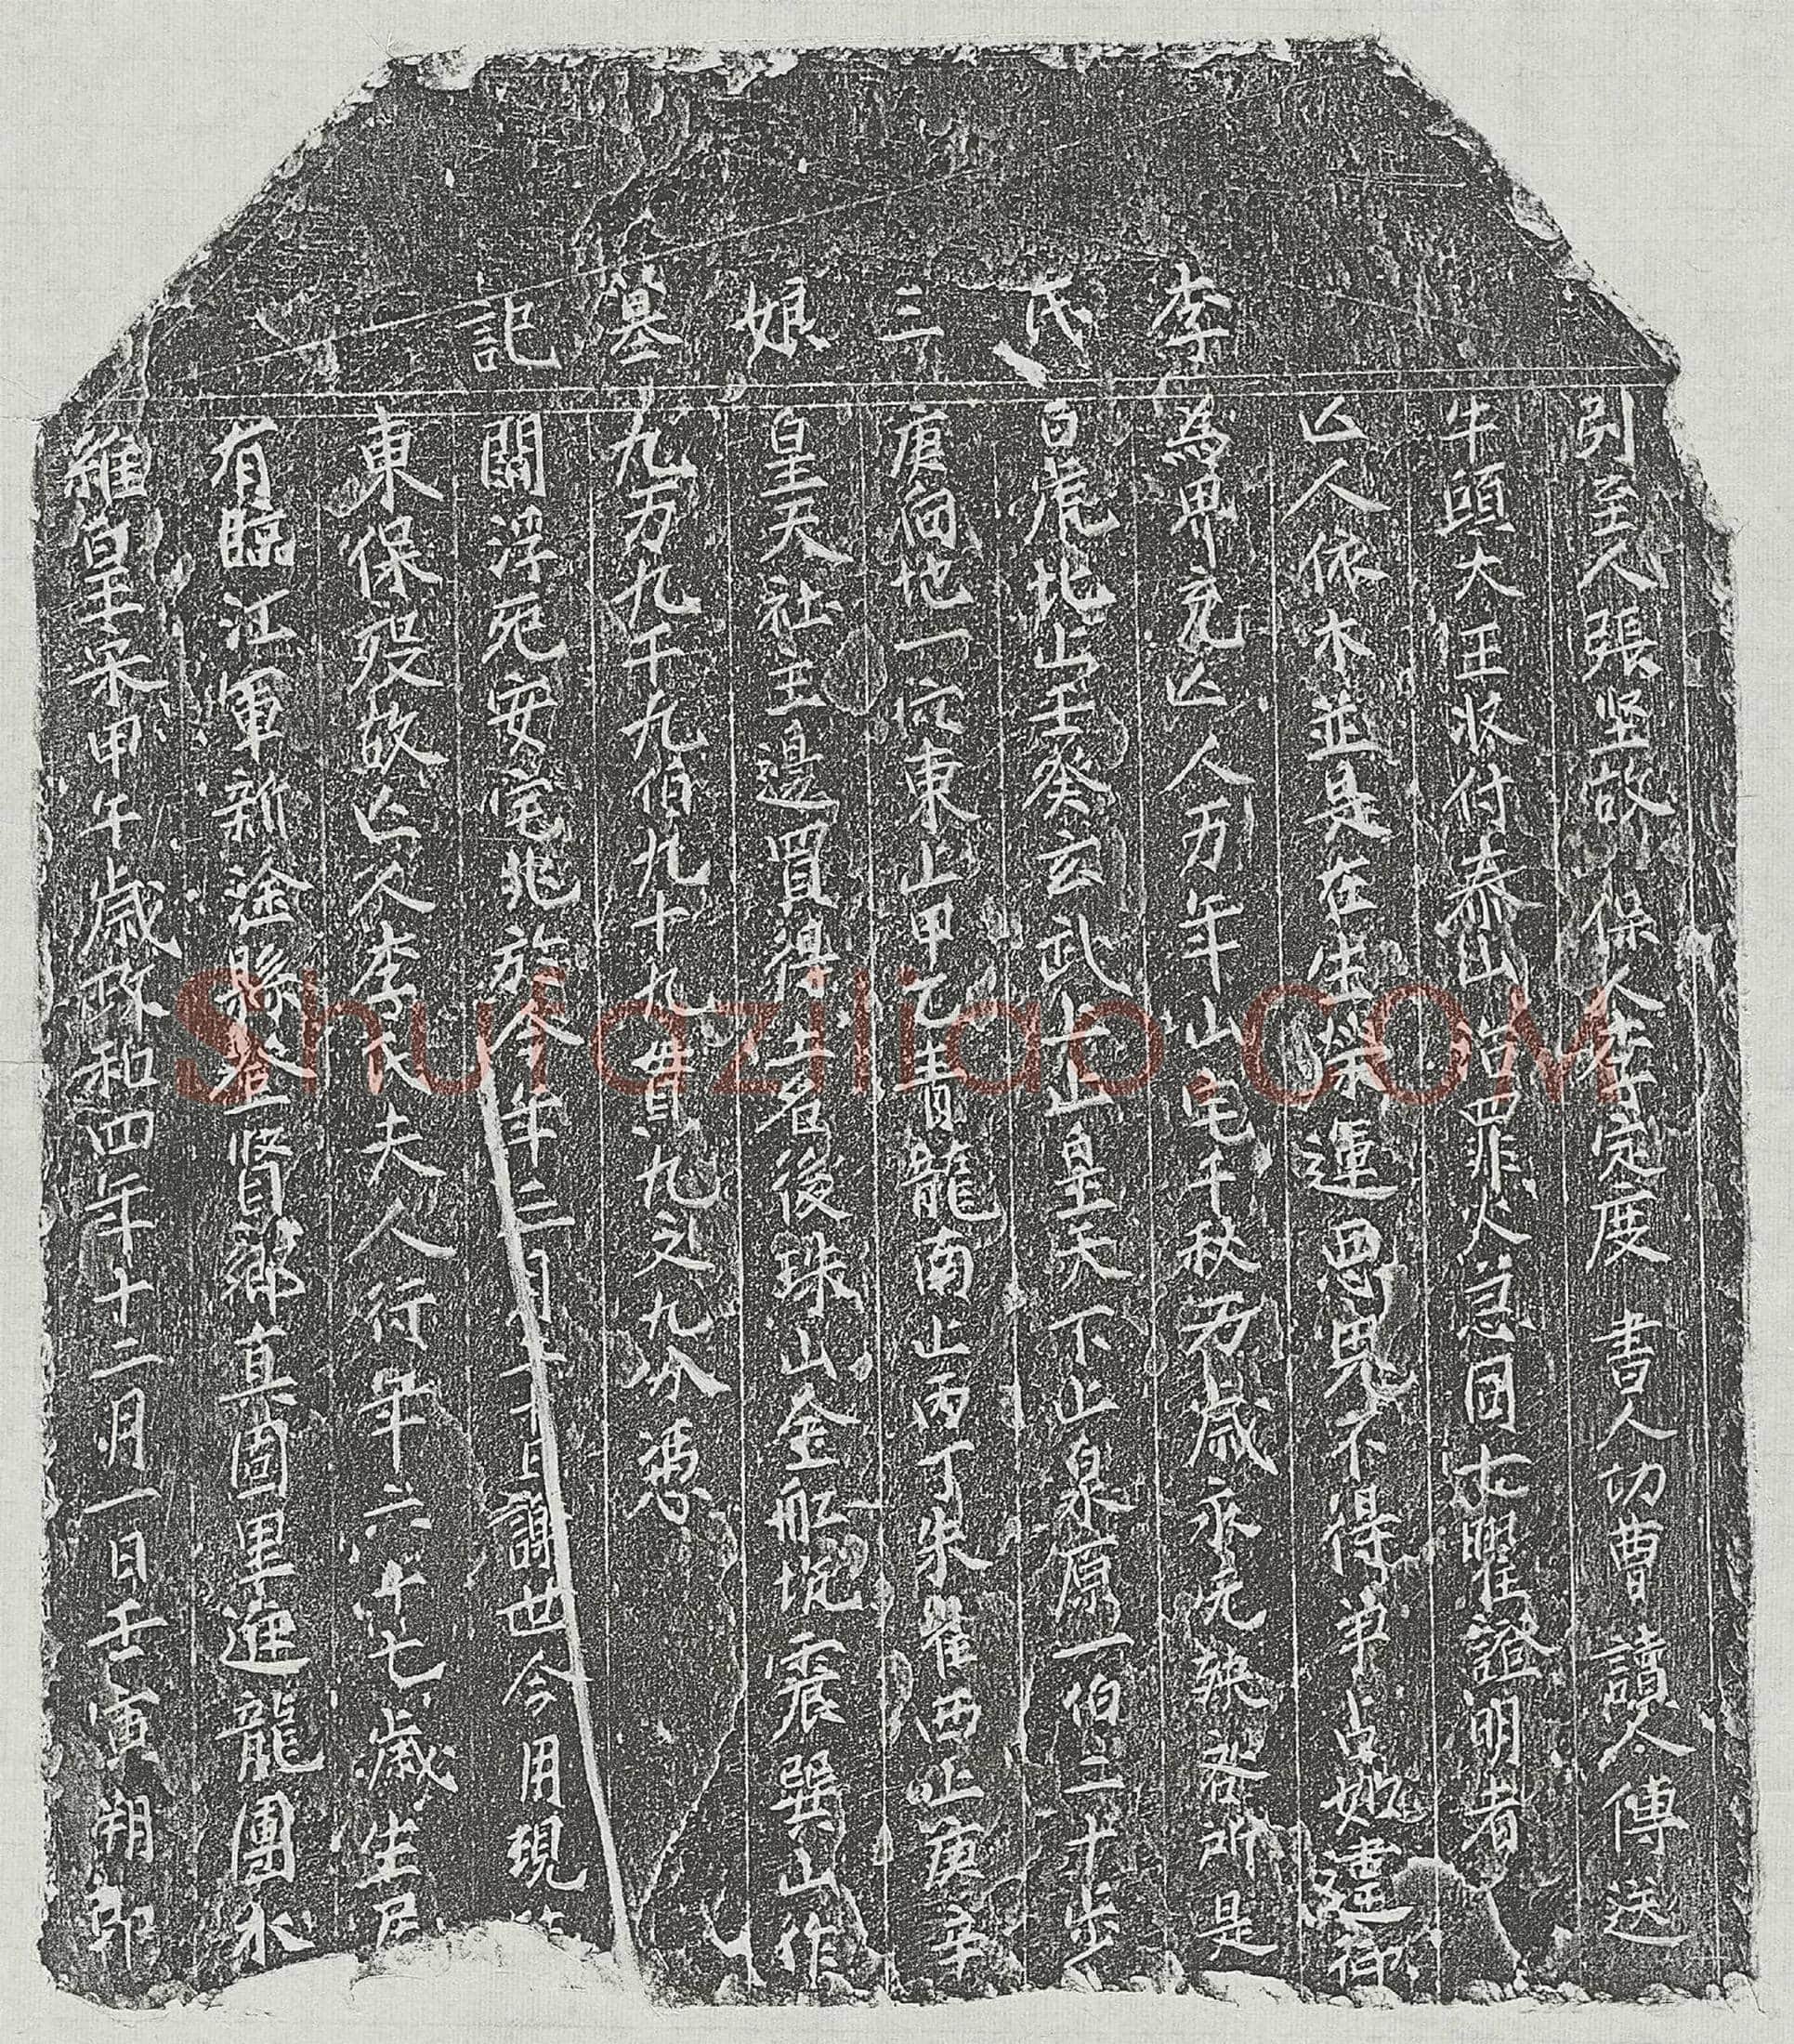 李氏三娘墓記
維皇宋甲午歲政和四年十二月一日壬寅朔即
有臨江軍新淦縣登賢鄉真固里迎龍團水
東保殁故亾人李氏夫人行年六十七歲生居
閻浮死安宅兆於今年三月十日謝世今用現
九万九千九伯九十九貫九文九分憑
皇天社主邊買得土名後珠山金舡坑震巽山作
庚向地一穴東止甲乙青龍南止丙丁朱雀西止庚辛
白虎北止壬癸玄武上止皇天下止泉原一伯二十步
為界充亾人万年山宅千秋万歲永无殃咎所是
亾人依木並是在生榮運不得占如違仰
牛頭大王收付泰山罪火急證明者
引至人張坚故 保人李定度 書人功曹 讀人傳送
Shufaziliao.COM